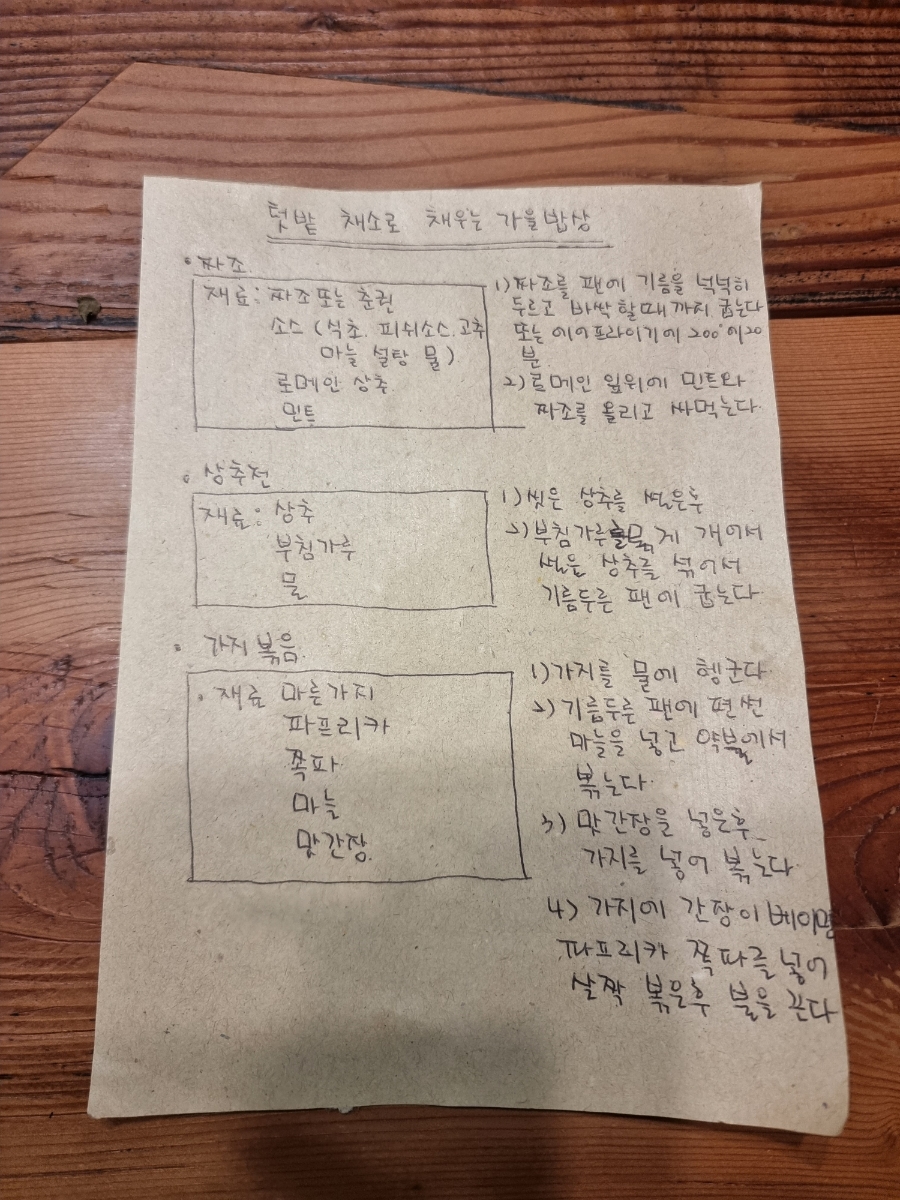 텃밭 채소로 채우는 가을밥상
• 짜조
재료: 짜조 또는 춘권
소스 (식초, 피쉬소스, 고추
마늘 설탕 물)
로메인 상추
민트
1) 짜조를 팬에 기름을 넉넉히
두르고 바싹할때까지 굽는다
또는 에어프라이기에 200°에 20
분
2) 로메인 잎위에 민트와
짜조를 올리고 싸먹는다.
• 상추전
재료: 상추
부침가루
물
1) 씻은 상추를 썰은후
2) 부침가루를 묽게 개어서
썰은 상추를 섞어서
기름두른 팬에 굽는다.
• 가지볶음
• 재료 마른가지
파프리카
쪽파
마늘
맛간장
1) 가지를 물에 헹군다.
2) 기름두른 팬에 편썬
마늘을 넣고 약불에서
볶는다.
3) 맛간장을 넣은후
가지를 넣어 볶는다
4) 가지에 간장이 베이면
파프리카 쪽파를 넣어
살짝 볶은후 불을 끈다